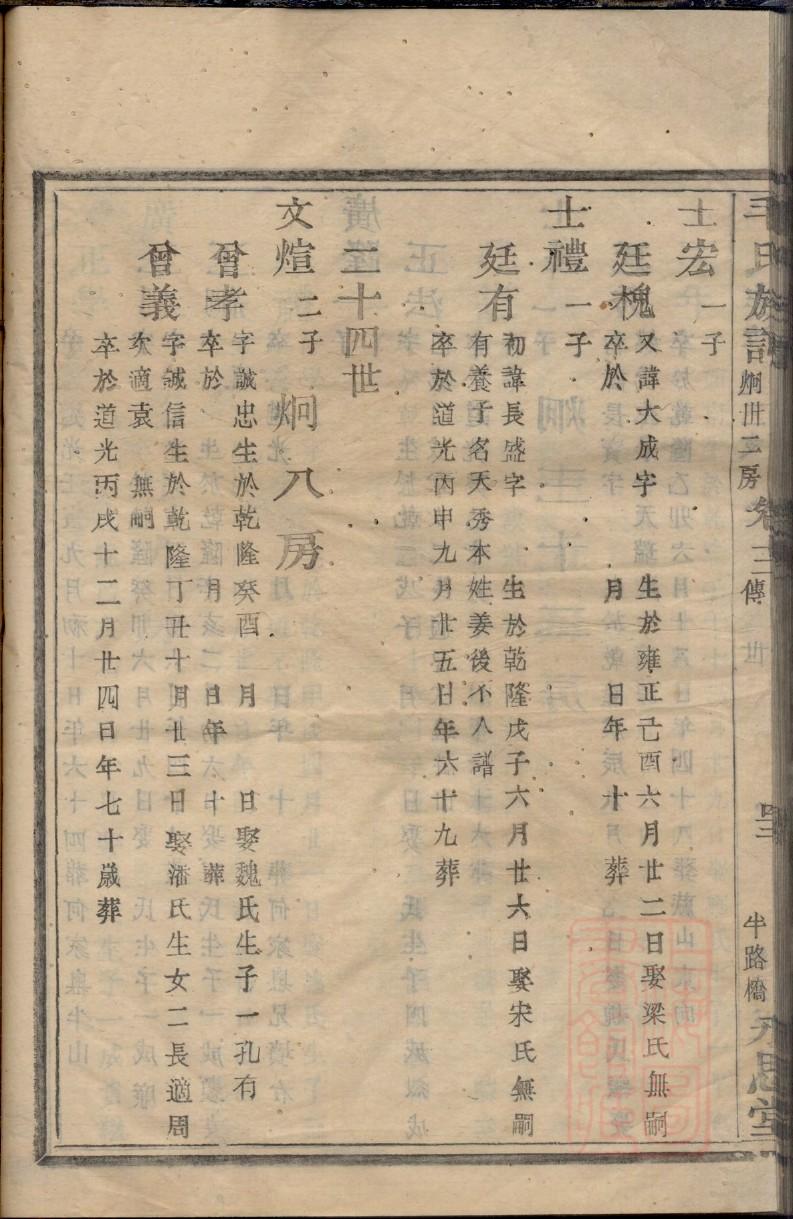 毛氏族譜 炯廿二房 卷十三傳 廿 四三 半路橋 永思堂
士宏 一子
廷槐 又諱大成字天瑞 生於雍正己酉六月廿二日娶梁氏無嗣
卒於 月 日年 十 葬
士禮 一子
廷有 初諱長盛字 生於乾隆戊子六月廿六日娶宋氏無嗣
有養子名天秀本姓姜後不入譜
卒於道光丙申九月廿五日年六十九葬
二十四世
文煊 二子 炯八房
曾孝 字誠忠生於乾隆癸酉 月 日娶魏氏生子一孔有
卒於 月 日年 十 葬
曾義 字誠信生於乾隆丁丑十月廿三日娶潘氏生女二長適周
次適袁 無嗣
卒於道光丙戌十二月廿四日年七十歲葬